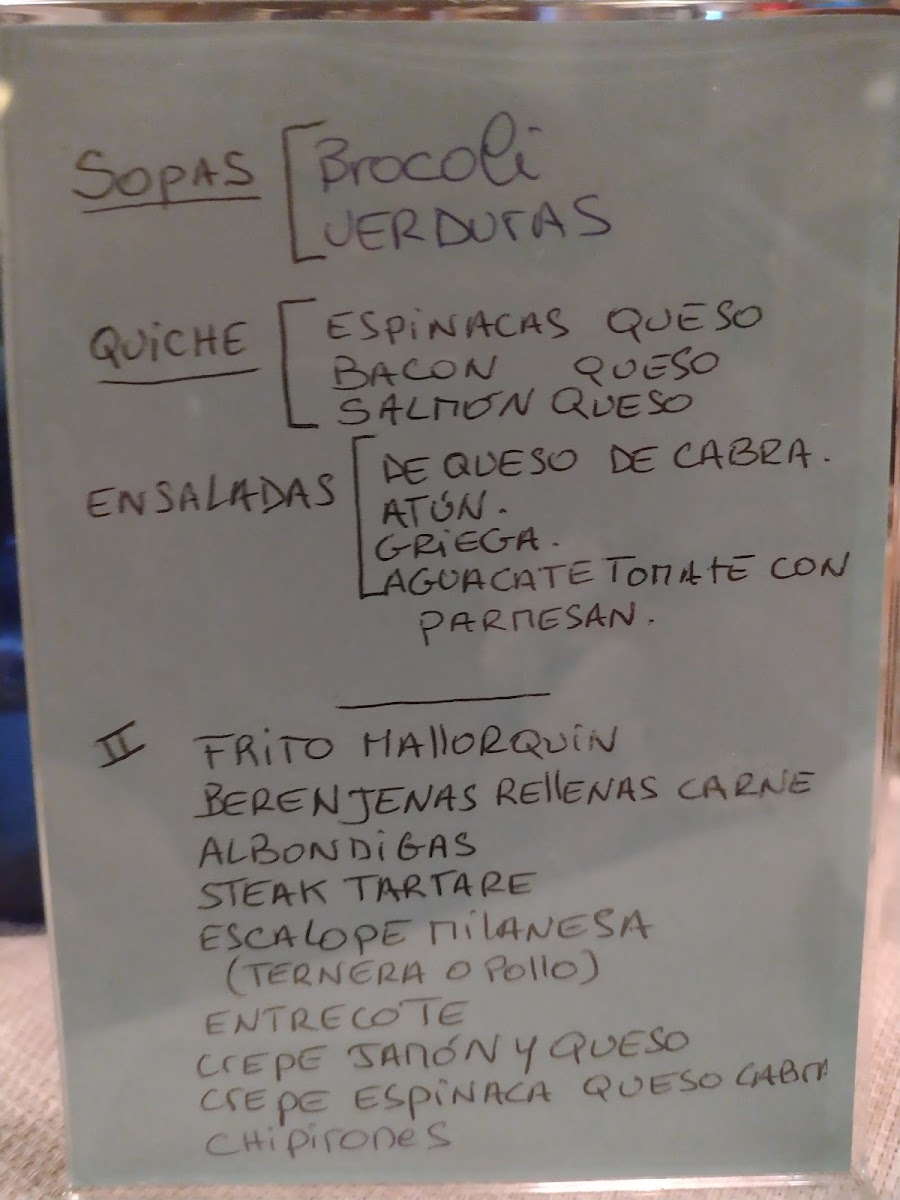 SOPAS Brocoli
VERDURAS
QUICHE ESPINACAS QUESO
BACON QUESO
SALMÓN QUESO
ENSALADAS DE QUESO DE CABRA.
ATÚN.
GRIEGA.
AGUACATE TOMATE CON
PARMESAN.
II FRITO MALLORQUIN
BERENJENAS RELLENAS CARNE
ALBONDIGAS
STEAK TARTARE
ESCALOPE MILANESA
(TERNERA O POLLO)
ENTRECOTE
CREPE JAMÓN Y QUESO
CREPE ESPINACA QUESO CABRA
CHIPIRONES